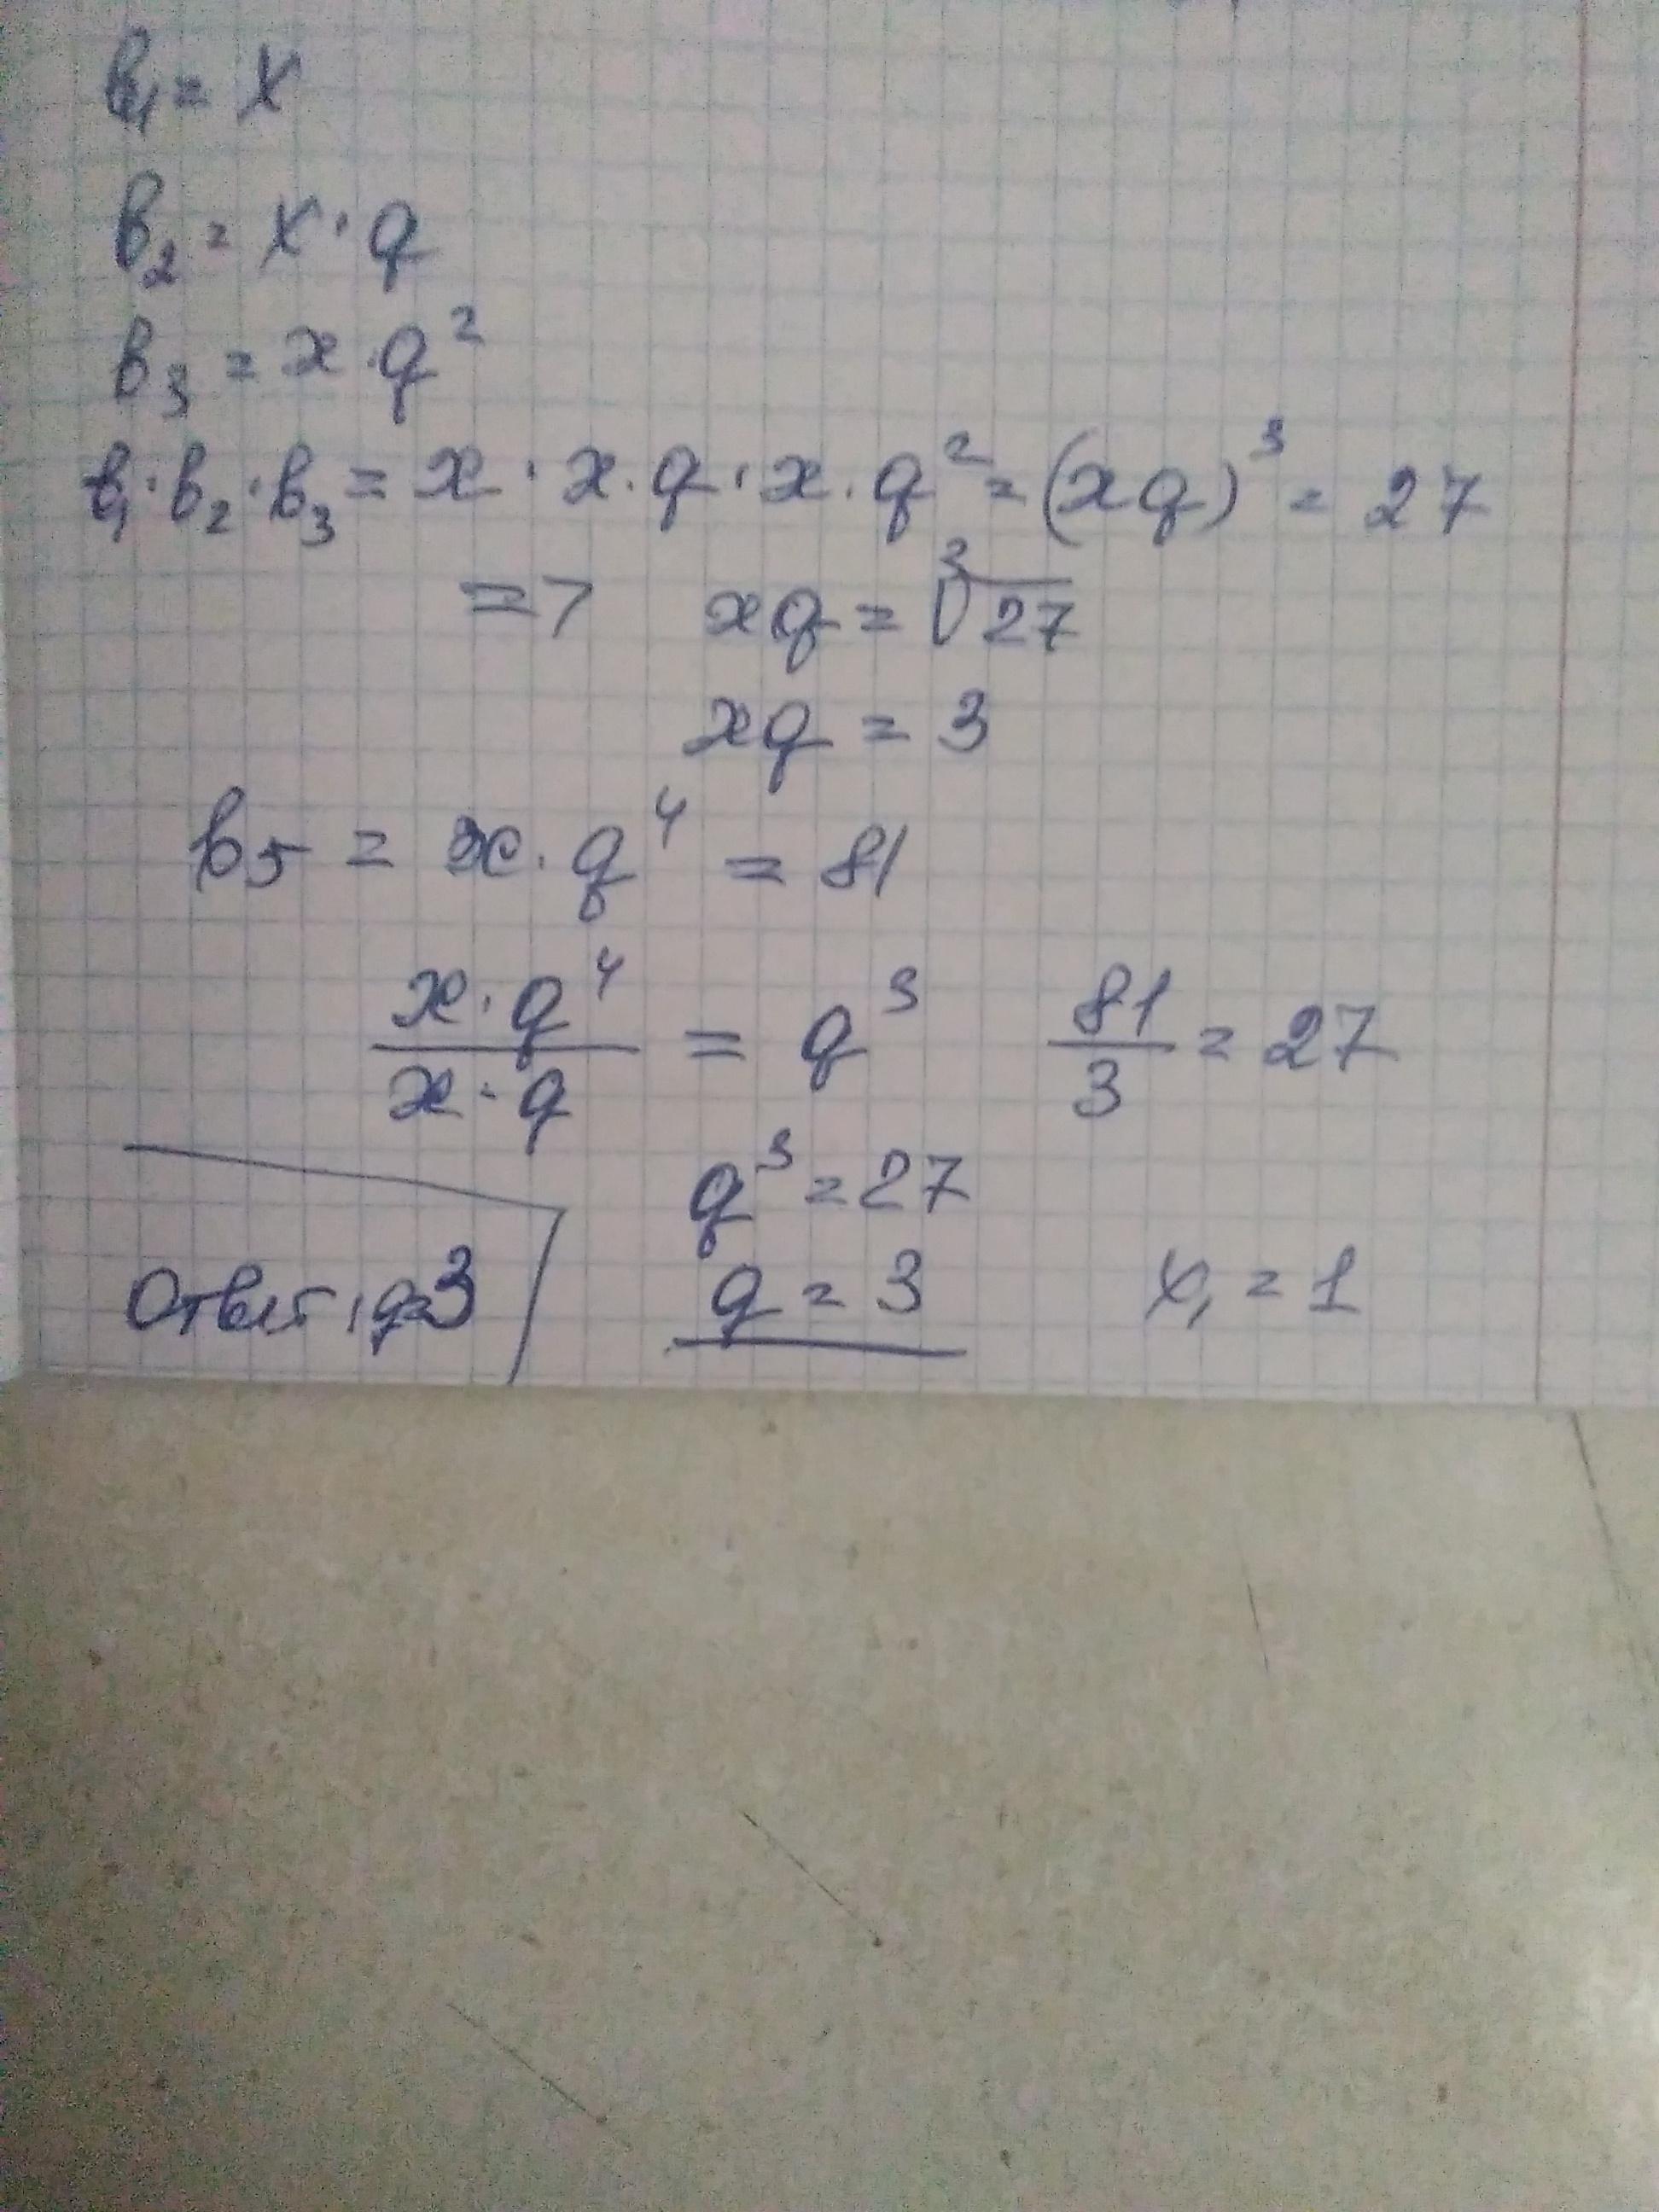 b₁ = x
b₂ = x · q
b₃ = x · q²
b₁ · b₂ · b₃ = x · x · q · x · q² = (xq)³ = 27
=> xq = ∛27
xq = 3
b₅ = x · q⁴ = 81
x · q⁴ / x · q = q³ 81/3 = 27
q³ = 27
Ответ: q=3 q = 3 x₁ = 1